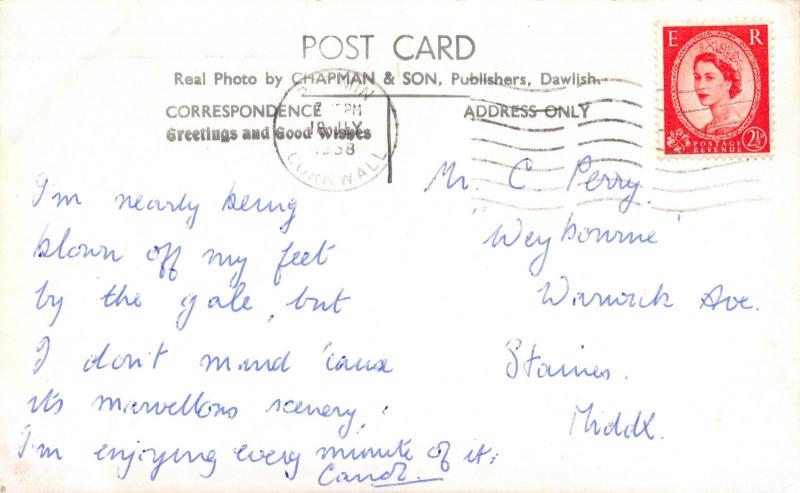 POST CARD
Real Photo by CHAPMAN & SON, Publishers, Dawlish.
CORRESPONDENCE
ADDRESS ONLY
Greetings and Good Wishes
E R
POSTAGE
REVENUE
2½
PM
18 JLY
1958
CORNWALL
I'm nearly being
blown off my feet
by the gale, but
I don't mind 'cause
its marvellous scenery,
I'm enjoying every minute of it.
Carol.
Mr. C. Perry.
"Weybourne"
Warwick Ave.
Staines.
Middx.